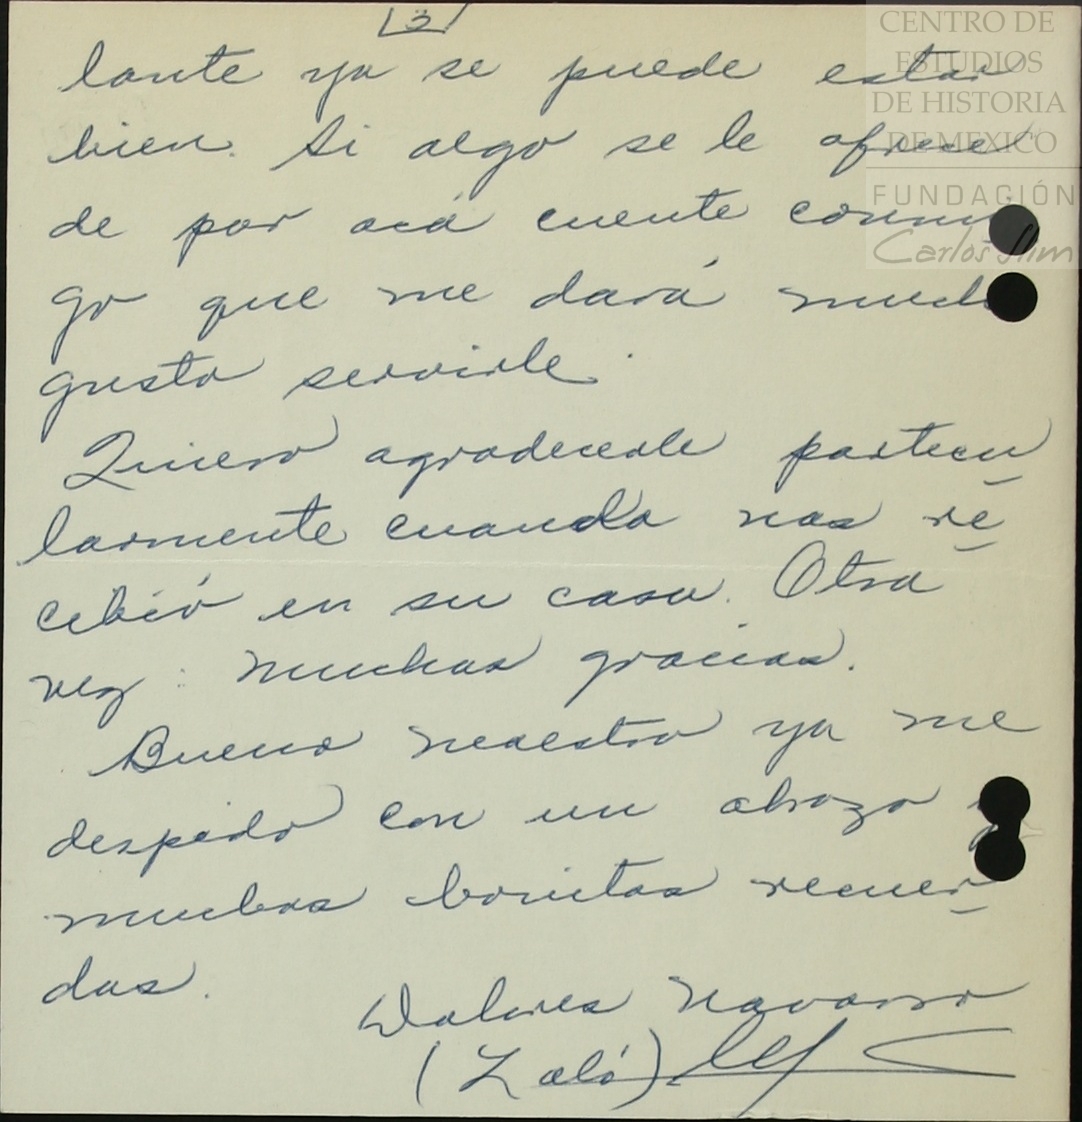 3
lante ya se puede estar
bien. Si algo se le ofrece
de por acá cuente conmi
go que me dará mucho
gusto servirle.
Quiero agradecerle particu
larmente cuando nos re
cibió en su casa. Otra
vez: muchas gracias.
Bueno maestro ya me
despido con un abrazo y
muchos bonitos recuer
dos.
Dolores Navarro
(Laló)
CENTRO DE
ESTUDIOS
DE HISTORIA
DE MEXICO
FUNDACIÓN
Carlos Slim